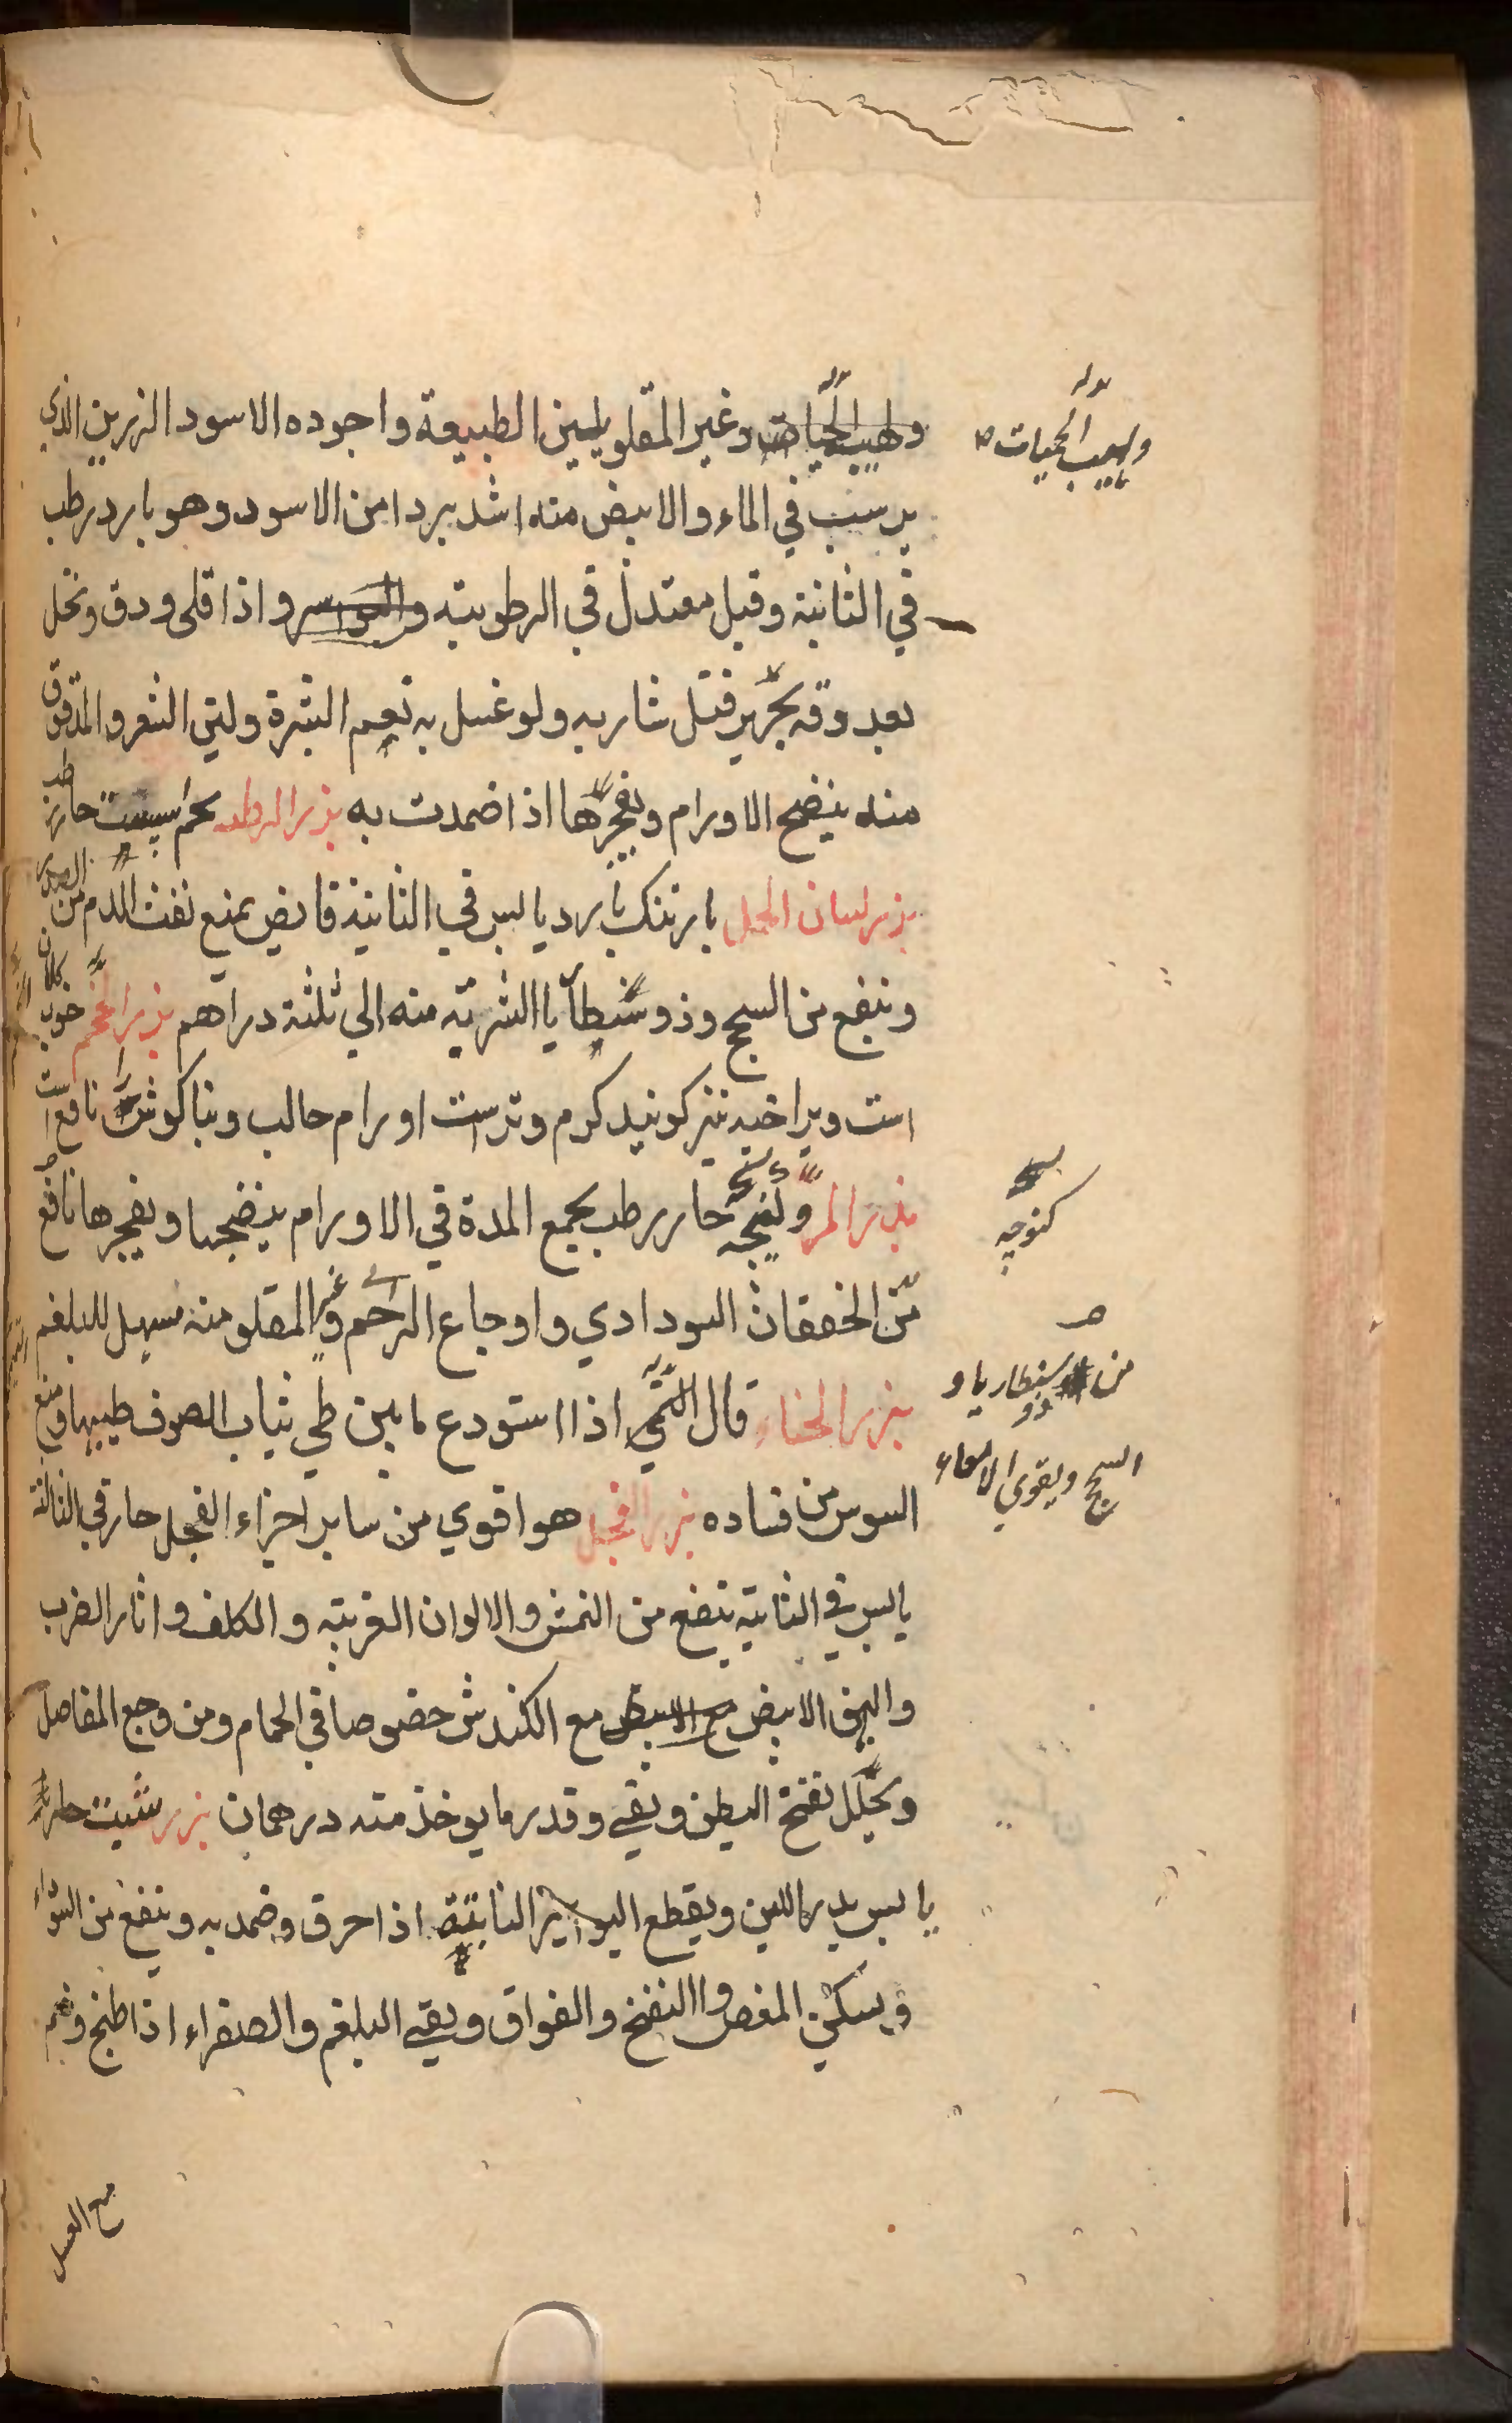 ولهيب الحميات وغير المقلو يلين الطبيعة واجوده الاسود الزرين الذي
يرسب في الماء والابيض منه اشد بردا من الاسود وهو بارد رطب
في الثانية وقيل معتدل في الرطوبته واذا قلى ودق ونخل
بعد دقه بحرير قتل شاربه ولو غسل به نعم البشرة ولين الشعر والمدقوق
منه ينضج الاورام ويفجرها اذا ضمدت به بذر الرطبه تخم اسپست حار رطب
بذر لسان الحمل بارتنك بارد يابس في الثانية قابض يمنع نفث الدم من الصدر
وينفع من السحج وذوسنطاريا الشربة منه الي ثلثة دراهم بذر الخمخم خوب كلان
است وبرا خبه نيز كويند كرم وتر است اورام حالب وبناكوش را نافع است
بذر المرو حار رطب يجمع المدة في الاورام ينضجها ويفجرها نافع
من الخفقان السوداوي واوجاع الرحم وغير المقلو منه مسهل للبلغم
بزر الحناء قال التميمي اذا استودع ما بين طي ثياب الصوف طيبها ومنع
السوس من فساده بزر الفجل هو اقوي من ساير اجزاء الفجل حار في الثالثة
يابس في الثانية ينفع من النمش والالوان الغريبه والكلف واثار الضرب
والبهق الابيض مع الابيض مع الكندش خصوصا في الحمام ومن وجع المفاصل
ويحلل نفخ البطن ويقي وقدر ما يوخذ منه درهمان بزر شبت حار
يابس يدر اللبن ويقطع البواسير النابتة اذا احرق وضمد به وينفع من
ويسكن المغص والنفخ والفواق ويقي البلغم والصفراء اذا طبخ
مع العسل
ولهيب الحميات
كنوجه
من ذوسنطاريا و
السحج ويقوي الامعاء